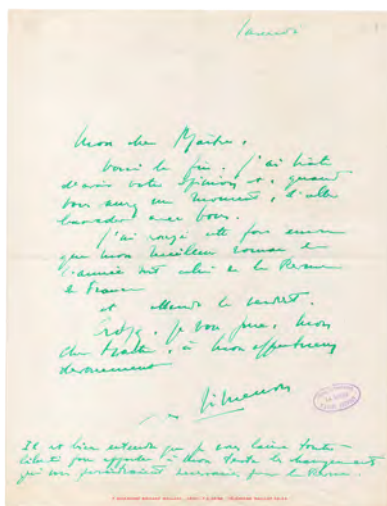 Samedi
Mon cher Maître,
Voici la fin. J'ai hâte
d'avoir votre opinion et, quand
vous aurez un moment, d'aller
bavarder avec vous.
J'ai cette fois encore
que mon meilleur roman de
l'année soit celui de la Revue
de France
et attends le verdict.
Croyez, je vous prie, mon
cher Maître, à mon affectueux
dévouement
Simenon
Il est bien entendu que je vous laisse toute
liberté pour apporter à mon texte les changements
qui vous paraîtraient nécessaires pour la Revue.